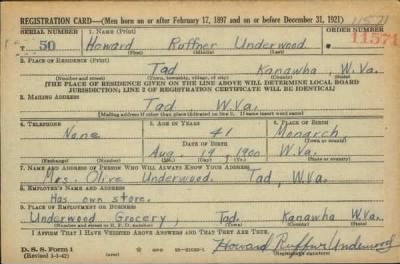 REGISTRATION CARD—(Men born on or after February 17, 1897 and on or before December 31, 1921) 11571
SERIAL NUMBER 1. NAME (Print) ORDER NUMBER
T 50 Howard Ruffner Underwood 11571
(First) (Middle) (Last)
2. PLACE OF RESIDENCE (Print)
Tad Kanawha, W. Va.
(Number and street) (Town, township, village, or city) (County) (State)
[THE PLACE OF RESIDENCE GIVEN ON THE LINE ABOVE WILL DETERMINE LOCAL BOARD JURISDICTION; LINE 2 OF REGISTRATION CERTIFICATE WILL BE IDENTICAL]
3. MAILING ADDRESS
Tad W.Va.
[Mailing address if other than place indicated on line 2. If same insert word same]
4. TELEPHONE 5. AGE IN YEARS 6. PLACE OF BIRTH
None 41 Monarch
DATE OF BIRTH (Town or county)
Aug. 19 1900 W.Va.
(Exchange) (Number) (Mo.) (Day) (Yr.) (State or country)
7. NAME AND ADDRESS OF PERSON WHO WILL ALWAYS KNOW YOUR ADDRESS
Mrs. Olive Underwood. Tad, W.Va.
8. EMPLOYER'S NAME AND ADDRESS
Has own store.
9. PLACE OF EMPLOYMENT OR BUSINESS
Underwood Grocery, Tad. Kanawha W.Va.
(Number and street or R. F. D. number) (Town) (County) (State)
I AFFIRM THAT I HAVE VERIFIED ABOVE ANSWERS AND THAT THEY ARE TRUE.
D. S. S. Form 1
(Revised 1-1-42) (over) Howard Ruffner Underwood
(Registrant's signature)